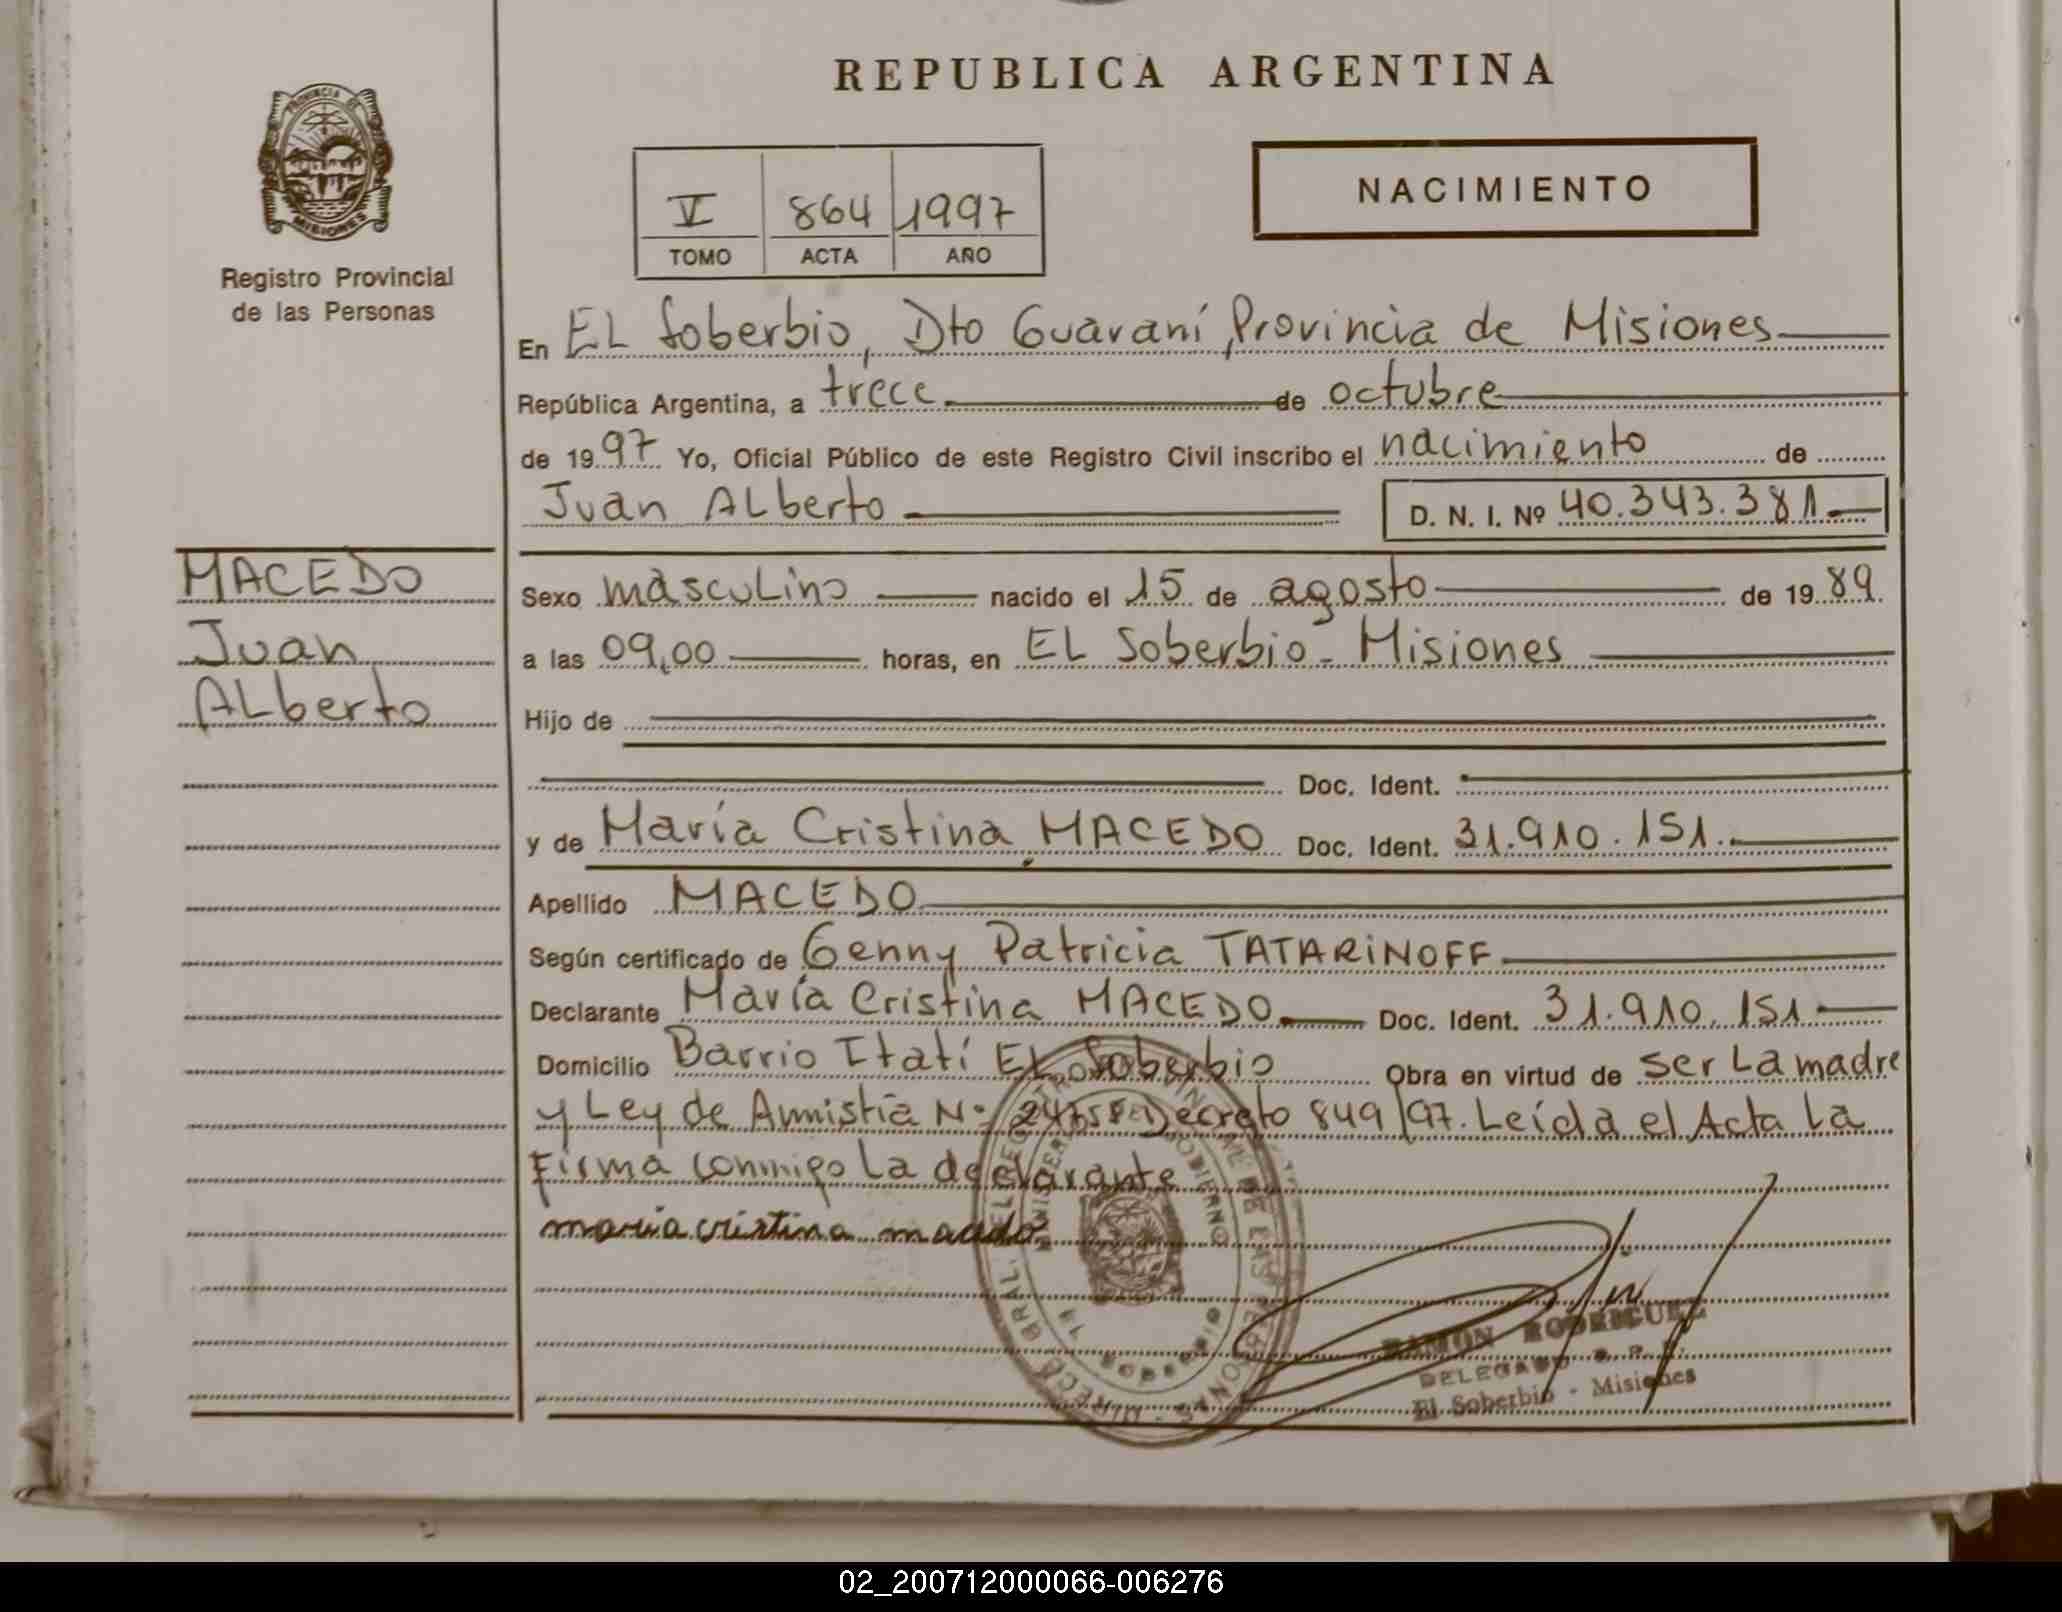 REPUBLICA ARGENTINA
PROVINCIA DE
MISIONES
Registro Provincial
de las Personas
V 864 1997
TOMO ACTA AÑO
NACIMIENTO
En EL Soberbio, Dto Guaraní, Provincia de Misiones
República Argentina, a trece de octubre
de 1997 Yo, Oficial Público de este Registro Civil inscribo el nacimiento de
Juan ALberto D. N. I. Nº 40.343.381
MACEDO
Juan
ALberto
Sexo masculino nacido el 15 de agosto de 1989
a las 09,00 horas, en EL Soberbio - Misiones
Hijo de
Doc. Ident.
y de María Cristina MACEDO Doc. Ident. 31.910.151.
Apellido MACEDO
Según certificado de Genny Patricia TATARINOFF
Declarante María Cristina MACEDO Doc. Ident. 31.910.151
Domicilio Barrio Itatí EL Soberbio Obra en virtud de ser La madre
y Ley de Amnistia Nº Decreto 849/97. Leída el Acta La
Firma conmigo La declarante
maria cristina macedo
RAMON RODRIGUEZ
DELEGADO R. P.
El Soberbio - Misiones
02_200712000066-006276